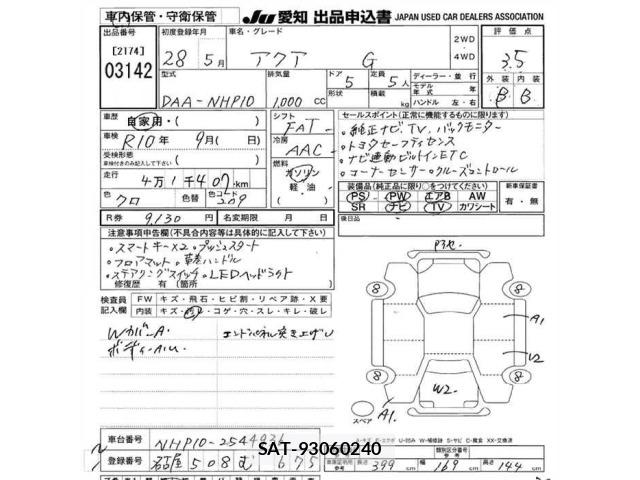 車内保管・守衛保管 JU 愛知 出品申込書 JAPAN USED CAR DEALERS ASSOCIATION
出品番号 初度登録年月 車名・グレード 2WD 評価点
[2174] 28年 5月 アクア G ・ 3.5
03142 4WD
型式 排気量 ドア 定員 ディーラー・並行 外装 内装
DAA-NHP10 1,000 CC 5 5人 モデル年式 年 B B
形状 積載 kg ハンドル 左・右
車歴 自家用・( ) シフト FAT セールスポイント(正常に機能するものに限ります)
車検 R10年 9月( 日) 冷房 AAC ・純正ナビ、TV、バックモニター
受検形態 ( ) ・トヨタセーフティセンス
車検付きのみ記入して下さい 燃料 ・ナビ連動ビルトインETC
走行 4万1千407km ガソリン ・コーナーセンサー・クルーズコントロール
軽・油
色 クロ 色替 色コード 209 装備品(純正品に限り○をつけてください) 新車保証書
R券 9,130円 名変期限 月 日 PS PW エアB AW 有・無
SR ナビ TV カワシート
注意事項申告欄(不具合内容等は具体的に記入して下さい) 後日品
・スマートキーX2・プッシュスタート
・フロアマット・革巻ハンドル
・ステアリングスイッチ・LEDヘッドライト
修復歴 有(箇所 )
検査員記入欄 FW キズ・飛石・ヒビ割・リペア跡・X要
内装 キズ・汚レ・コゲ・穴・スレ・キレ・破レ
WカバーA エンドパネル突き上げU
ボディーAIU
8 8
A1
U2
8 8
W2
スペア A1
A-キズ E-エクボ U-凹み W-補修跡 S-サビ C-腐食 XX-交換済
車台番号 NHP10-2544931
SAT-93060240
登録番号 名古屋 508 む 675 長さ 399 幅 169 高さ 144
類別区分番号